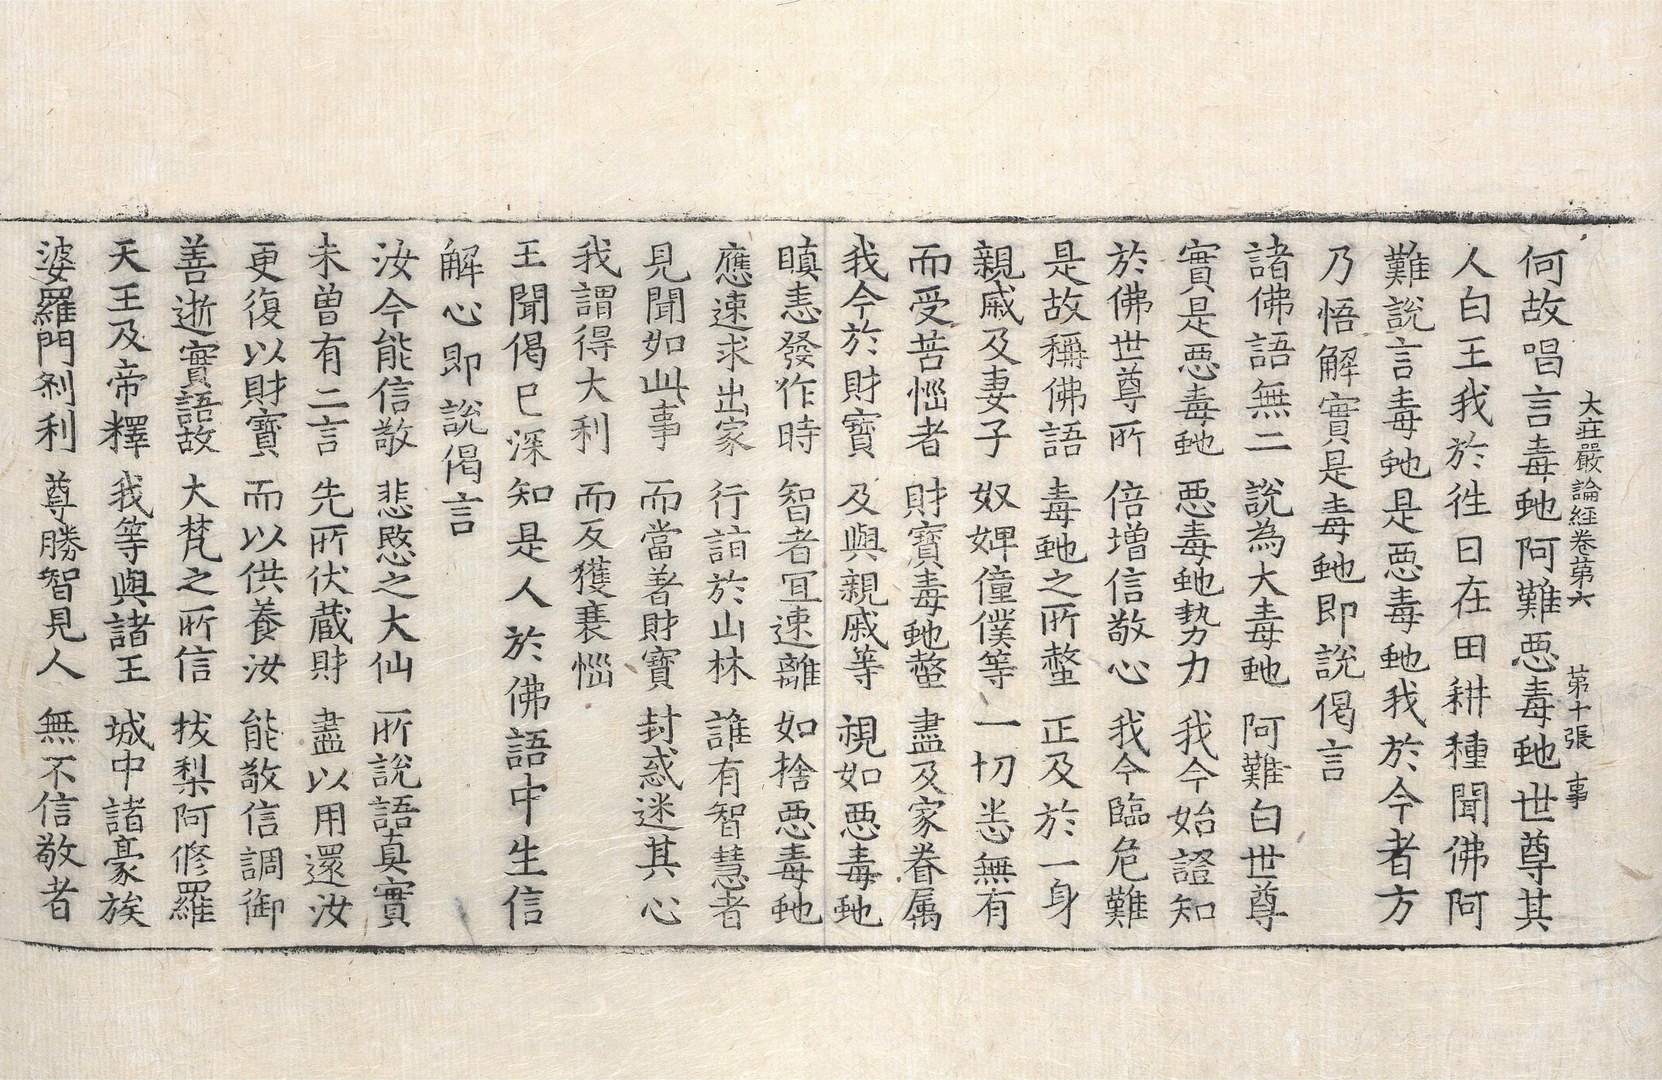 大莊嚴論經卷第六 第十張 事
何故唱言毒虵阿難惡毒虵世尊其
人白王我於徃日在田耕種聞佛阿
難說言毒虵是惡毒虵我於今者方
乃悟解實是毒虵即說偈言
諸佛語無二 說為大毒虵 阿難白世尊
實是惡毒虵 惡毒虵勢力 我今始證知
於佛世尊所 倍增信敬心 我今臨危難
是故稱佛語 毒虵之所螫 正及於一身
親戚及妻子 奴婢僮僕等 一切悉無有
而受苦惱者 財寶毒虵螫 盡及家眷屬
我今於財寶 及與親戚等 視如惡毒虵
瞋恚發作時 智者宜速離 如捨惡毒虵
應速求出家 行詣於山林 誰有智慧者
見聞如此事 而當著財寶 封惑迷其心
我謂得大利 而反獲衰惱
王聞偈已深知是人於佛語中生信
解心即說偈言
汝今能信敬 悲愍之大仙 所說語真實
未曾有二言 先所伏藏財 盡以用還汝
更復以財寶 而以供養汝 能敬信調御
善逝實語故 大梵之所信 拔梨阿修羅
天王及帝釋 我等與諸王 城中諸豪族
婆羅門刹利 尊勝智見人 無不信敬者